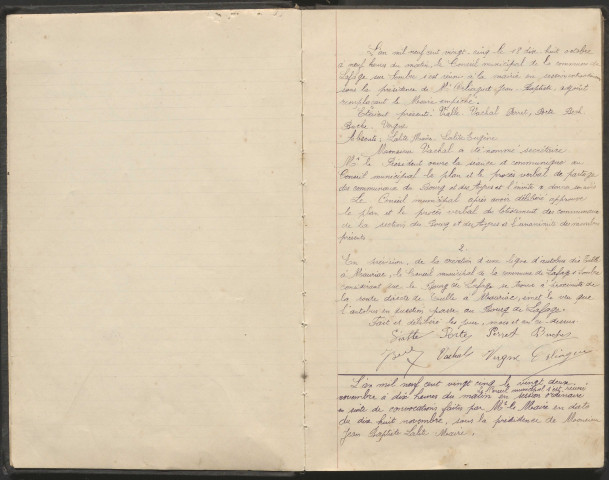 L'an mil neuf cent vingt cinq le 18 dix huit octobre
à neuf heures du matin, le Conseil municipal de la commune de
Lafage sur Sombre s'est réuni à la mairie en
sous la présidence de Mr Jean Baptiste, adjoint
remplaçant le Maire empêché.
Étaient présents: Vialle, Vachal, Peuch
Vergne
Absents: Lalité Lalité Eugène
Monsieur Vachal a été nommé secrétaire
Mr le Président ouvre la séance et communique au
Conseil municipal le plan et le procès verbal de partage
des communaux du Bourg et des et l'invite à
Le Conseil municipal après avoir délibéré approuve
le plan et le procès verbal de des communaux
de la section du Bourg et des à l'unanimité des membres
présents.
2
En prévision de la création d'une ligne d'autobus de Tulle
à Mauriac, le Conseil municipal de la commune de Lafage s/Sombre
considérant que le Bourg de Lafage se trouve à proximité de
la route directe de Tulle à Mauriac, émet le vœu que
l'autobus en question passe au Bourg de Lafage.
Fait et délibéré les jour, mois et an ci-dessus
Porte
Vachal Vergne
L'an mil neuf cent vingt cinq le vingt deux
le Conseil municipal s'est réuni
novembre à dix heures du matin en session ordinaire
en suite de convocations faites par Mr le Maire en date
du dix huit novembre, sous la présidence de Monsieur
Jean Baptiste Maire.